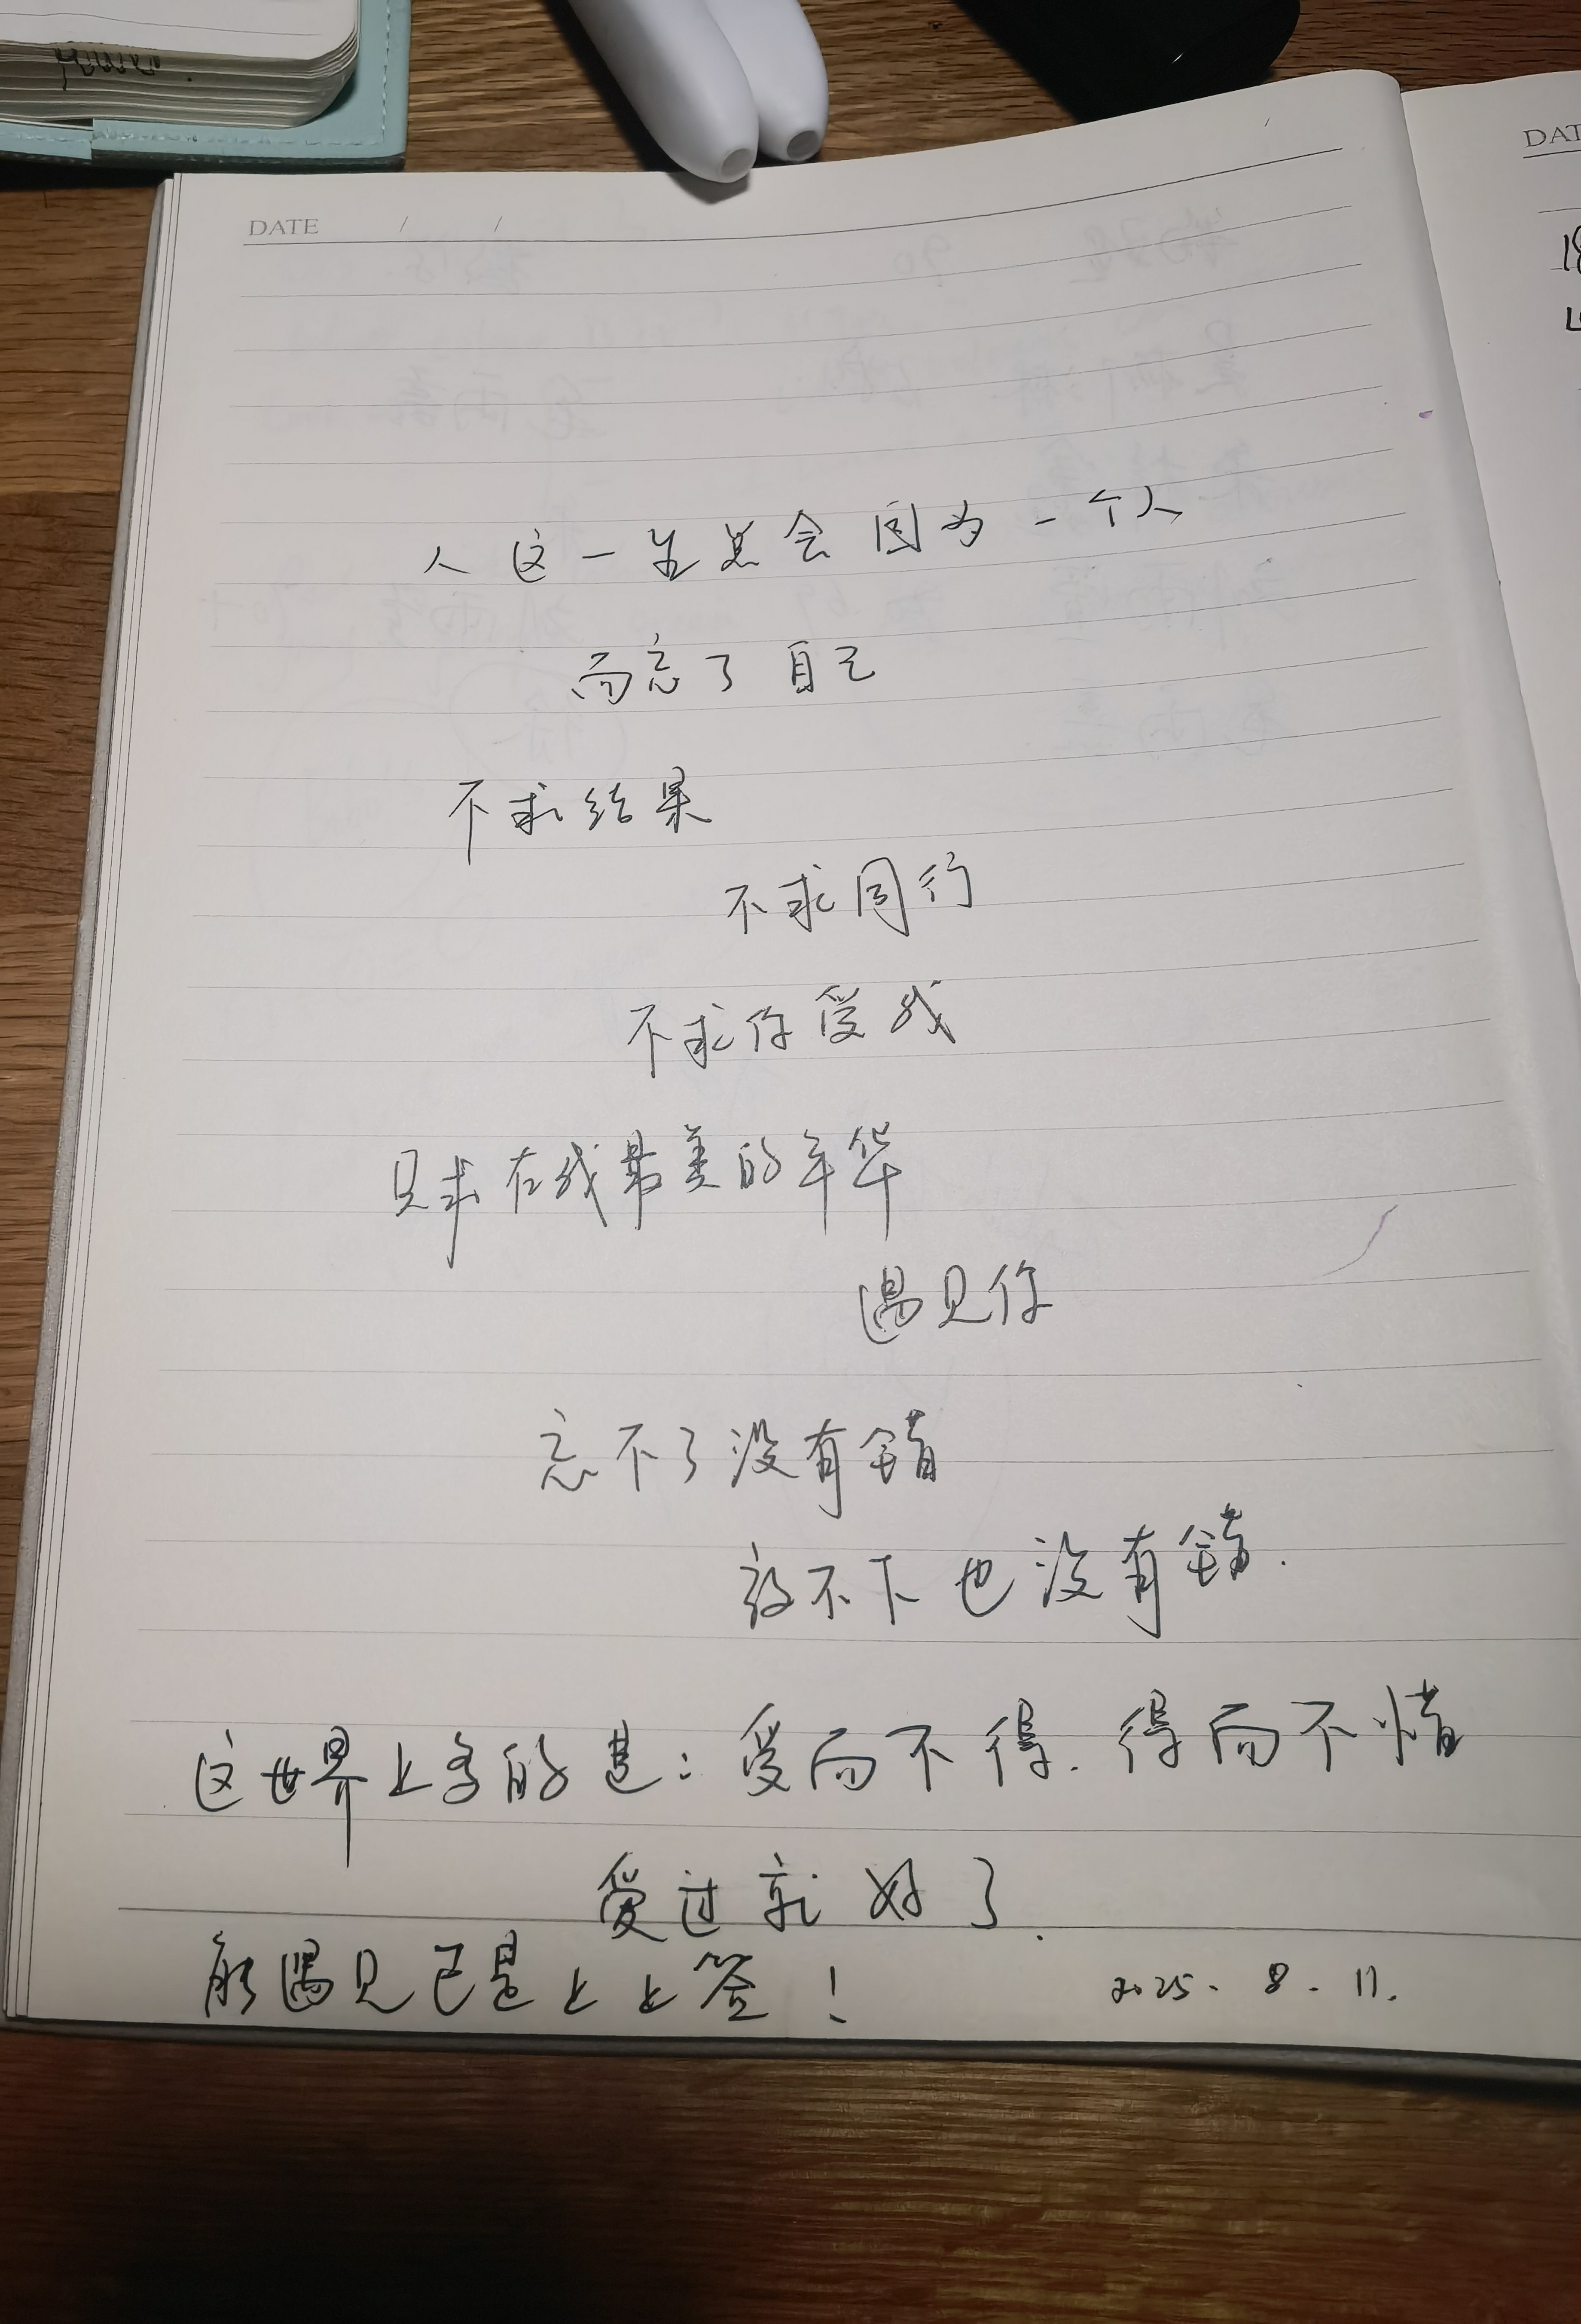 DATE / /
人这一生总会因为一个人
而忘了自己
不求结果
不求同行
不求你爱我
只求在我最美的年华
遇见你
忘不了没有错
放不下也没有错.
这世界上多的是:爱而不得.得而不惜
爱过就好了.
能遇见已是上上签!
2025.8.11.
DAT